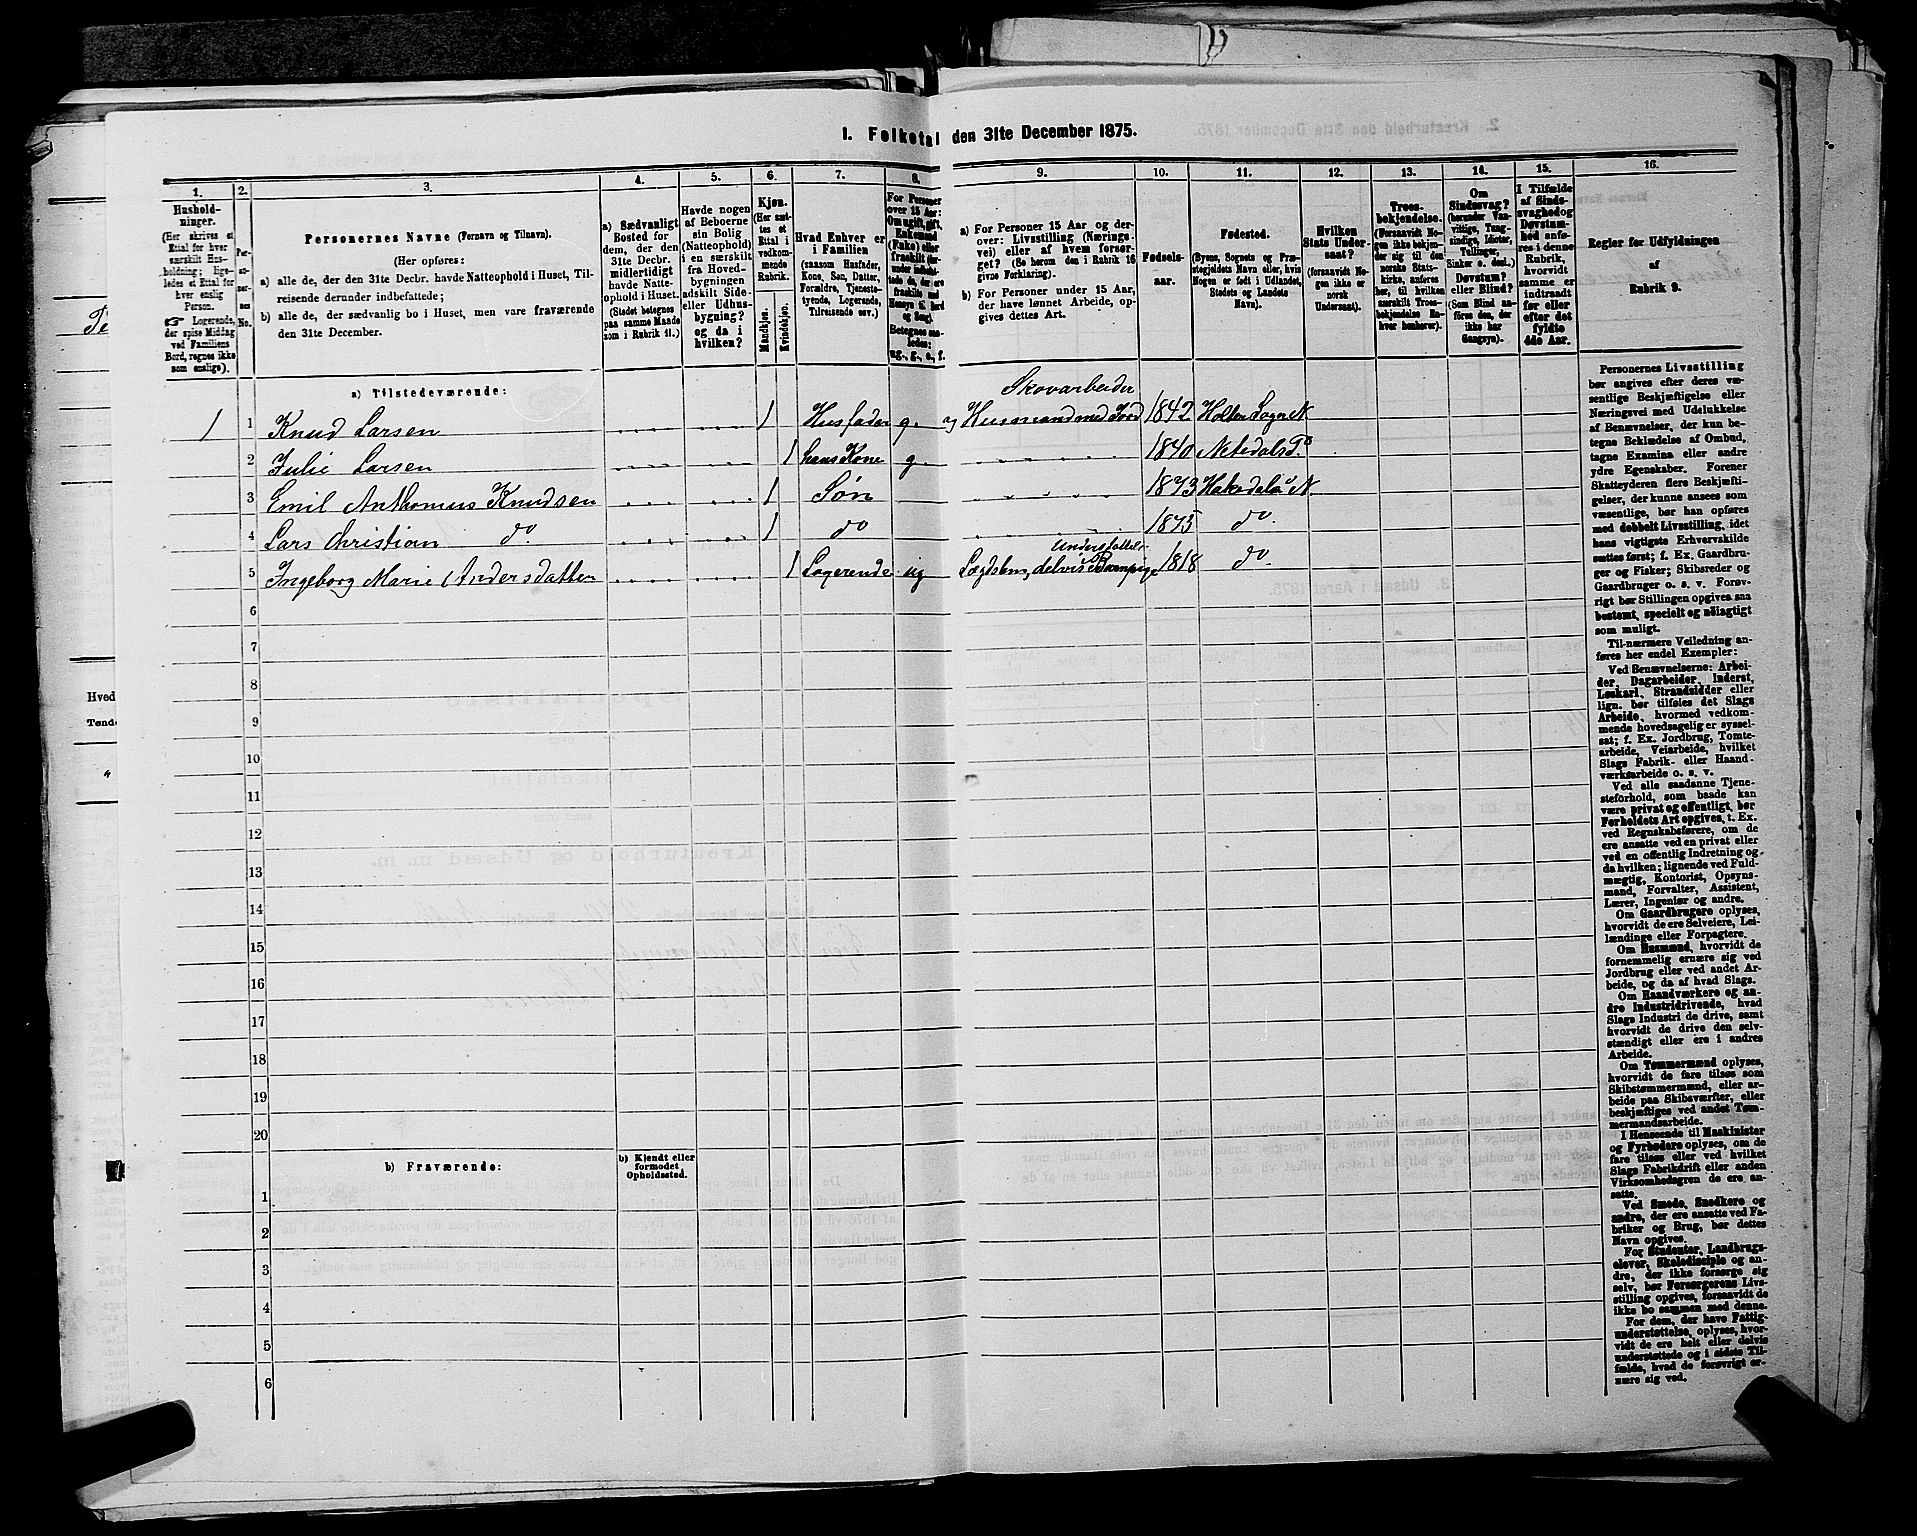 1. Folketal den 31te December 1875.
1. 2. 3. 4. 5. 6. 7. 8. 9. 10. 11. 12. 13. 14. 15. 16.
Hushold-
ninger.
(Her skrives et
Ettal for hver
særskilt Hus-
holdning; lige-
ledes et Ettal for
hver enslig
Person.
☞ Logerende,
der spise Middag
ved Familiens
Bord, regnes ikke
som enslige).
Per-
so-
ner-
nes
No.
Personernes Navne (Fornavn og Tilnavn).
(Her opføres:
a) alle de, der den 31te Decbr. havde Natteophold i Huset, Til-
reisende derunder indbefattede;
b) alle de, der sædvanlig bo i Huset, men vare fraværende
den 31te December.
a) Sædvanligt
Bosted for
dem, der den
31te Decbr.
midlertidigt
havde Natte-
ophold i Huset.
(Stedet betegnes
paa samme Maade
som i Rubrik 11.)
Havde nogen
af Beboerne
sin Bolig
(Natteophold)
i en særskilt
fra Hoved-
bygningen
adskilt Side-
eller Udhus-
bygning?
og da i
hvilken?
Kjøn.
(Her sæt-
tes et
Ettal i
vedkom-
mende
Rubrik.
Mandkjøn.
Kvindekjøn.
Hvad Enhver er
i Familien
(saasom Husfader,
Kone, Søn, Datter,
Forældre, Tjeneste-
tyende, Logerende,
Tilreisende osv.)
For Personer
over 15 Aar:
Om ugift, gift,
Enkemand
(Enke) eller
fraskilt
Betegnes saa-
ledes:
ug., g., e., f.
a) For Personer 15 Aar og der-
over: Livsstilling (Nærings-
vei) eller af hvem forsør-
get? (Se herom den i Rubrik 16
givne Forklaring).
b) For Personer under 15 Aar,
der have lønnet Arbeide, op-
gives dettes Art.
Fødsels-
aar.
Fødested.
(Byens, Sognets og Præ-
stegjeldets Navn eller, hvis
Nogen er født i Udlandet,
Stedets og Landets
Navn).
Hvilken
Stats Under-
saat?
(forsaavidt No-
gen ikke er
norsk
Undersaat).
Troes-
bekjendelse.
(Forsaavidt No-
gen ikke bekjen-
der sig til den
norske Stats-
kirke, anføres
her, til hvilken
særskilt Troes-
bekjendelse En-
hver henhører).
Om
Sindssvag?
(herunder Van-
vittige, Tung-
sindige, Idioter,
Tullinger,
Sinker o. desl.)
Døvstum?
eller Blind?
(Som Blind an-
føres den, der
ikke har
Gangsyn).
I Tilfælde
af Sinds-
svaghed og
Døvstum-
hed anfø-
res i denne
Rubrik,
hvorvidt
samme er
indtraadt
før eller
efter det
fyldte
4de Aar.
Regler for Udfyldningen
af
Rubrik 9.
a) Tilstedeværende:
Skovarbeider
1 1 Knud Larsen 1 Husfader g. og Husmand med Jord 1842 Holter Sogn N
2 Julie Larsen 1 hans Kone g 1840
3 Emil Anthonius Knudsen 1 Søn 1873 Hakedals N
4 Lars Christian do 1 do 1875 do.
5 Ingeborg Marie Andersdatter 1 Logerende ug 1818 do.
6
7
8
9
10
11
12
13
14
15
16
17
18
19
20
b) Fraværende:
b) Kjendt eller
formodet
Opholdssted.
1
2
3
4
5
6
Personernes Livsstilling
bør angives efter deres væ-
sentlige Beskjæftigelse eller
Næringsvei med Udelukkelse
af Benævnelser, der kun be-
tegne Beklædelse af Ombud,
tagne Examina eller andre
ydre Egenskaber. Forener
Skatteyderen flere Beskjæfti-
gelser, der kunne ansees som
væsentlige, bør han opføres
med dobbelt Livsstilling, idet
hans vigtigste Erhvervskilde
sættes først; f. Ex. Gaardbru-
ger og Fisker; Skibsreder og
Gaardbruger o. s. v. Forøv-
rigt bør Stillingen opgives saa
bestemt, specielt og nøiagtigt
som muligt.
Til nærmere Veiledning an-
føres her endel Exempler:
Ved Benævnelserne: Arbei-
der, Dagarbeider, Inderst,
Løskarl, Strandsidder eller
lign. bør tilføies det Slags
Arbeide, hvormed vedkom-
mende hovedsagelig er syssel-
sat; f. Ex. Jordbrug, Tomte-
arbeide, Veiarbeide, hvilket
Slags Fabrik- eller Haand-
værksarbeide o. s. v.
Ved alle saadanne Tjene-
steforhold, som baade kan
være privat og offentligt, bør
Forholdets Art opgives, t. Ex.
ved Regnskabsførere, om de
ere ansatte ved en privat eller
ved en offentlig Indretning og
da hvilken; lignende ved Fuld-
mægtig, Kontorist, Opsyns-
mand, Forvalter, Assistent,
Lærer, Ingeniør og andre.
Om Gaardbrugere oplyses,
hvorvidt de ere Selveiere, Lei-
lændinge eller Forpagtere.
Om Husmænd, hvorvidt de
fornemmelig ernære sig ved
Jordbrug eller ved andet Ar-
beide, og da af hvad Slags.
Om Haandværkere og an-
dre Industridrivende, hvad
Slags Industri de drive, samt
hvorvidt de drive den selv-
stændigt eller ere i andres
Arbeide.
Om Tømmermænd oplyses,
hvorvidt de fare tilsøs som
Skibstømmermænd, eller ar-
beide paa Skibsværfter, eller
beskjæftiges ved andet Tøm-
mermandsarbeide.
I Henseende til Maskinister
og Fyrbødere oplyses, om de
fare tilsøs eller ved hvilket
Slags Fabrikdrift eller anden
Virksomhedsgren de ere an-
satte.
Ved Smede, Snedkere og
andre, der ere ansatte ved Fa-
briker og Brug, bør dettes
Navn opgives.
For Studenter, Landbrugs-
elever, Skoledisciple og an-
dre, der ikke forsørge sig
selv, bør Forsørgerens Livs-
stilling opgives, forsaavidt de
ikke bo sammen med denne.
For dem, der have Fattig-
understøttelse, oplyses, hvor-
vidt de ere helt eller delvis
understøttede og i sidste Til-
fælde, hvad de forøvrigt er-
nære sig ved.
Hved
Tønde